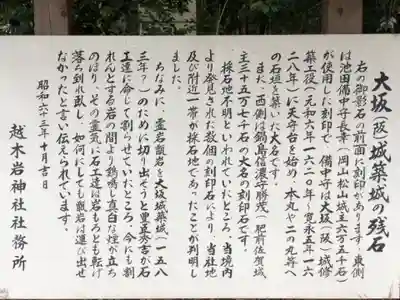 大坂(阪)城築城の残石
右の御影石の前面に刻印があります。東側
は池田備中守長幸(岡山松山城主六万五千石)
が使用した刻印で、備中守は大坂(阪)城修
築工役(元和六年一六二〇年~寛永五年一六
二八年)に天守台を始め、本丸や二の丸等へ
の石垣を築いた大名です。
また、西側は鍋島信濃守勝茂(肥前佐賀城
主三十五万七千石)の大名の刻印石です。
採石地不明といわれていたところ、当境内
より発見された数個の刻印石により、当社地
及び附近一帯が採石地であったことが判明し
ました。
ちなみに、霊岩甑岩を大坂城築城(一五八
三年?)のために切り出そうと豊臣秀吉が石
工達に命じて割らせていたところ、今にも割
れんとする岩の間より鶏鳴し真白な煙が立ち
のぼり、その霊気に石工達は岩もろとも転げ
落ち倒れ臥し、如何にしても甑岩は運び出せ
なかったと言い伝えられています。
昭和六十三年十月吉日
越木岩神社社務所